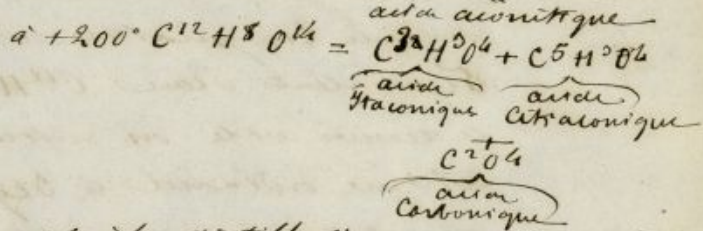 acide aconitique
à +200° C¹² H⁸ O¹⁴ = H³O⁴ + C⁵ H³O⁴
acide acide
Itaconique Citraconique
+
C²O⁴
acide
Carbonique